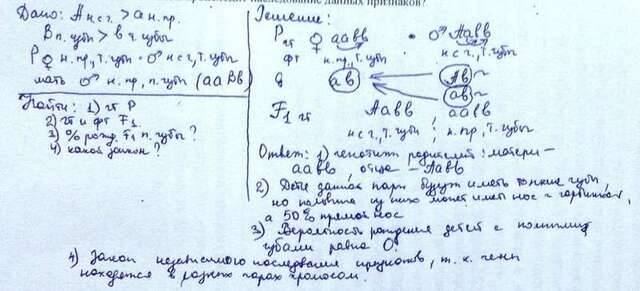 наследование данных признаков?
Дано: A н с г. > a н. пр.
B п. губы > b т. губы
P ♀ н. пр, т. губы · ♂ н с г, т. губы
мать ♂ н. пр, п. губы (aaBb)
Найти: 1) гт P
2) гт и фт F1
3) % рожд. F1 п. губы?
4) какой закон?
Решение:
P гт ♀ aabb · ♂ Aabb
фт н. пр., т. губы н с г., т. губы
g ab Ab
ab
F1 гт Aabb aabb
н с г., т. губы; н. пр., т. губы
Ответ: 1) генотип родителей: матери –
aabb, отца – Aabb
2) Дети данной пары будут иметь тонкие губы,
но половина из них может иметь нос с горбинкой,
а 50% прямой нос
3) Вероятность рождения детей с полными
губами равна 0.
4) Закон независимого наследования признаков, т. к. гены
находятся в разных парах хромосом.